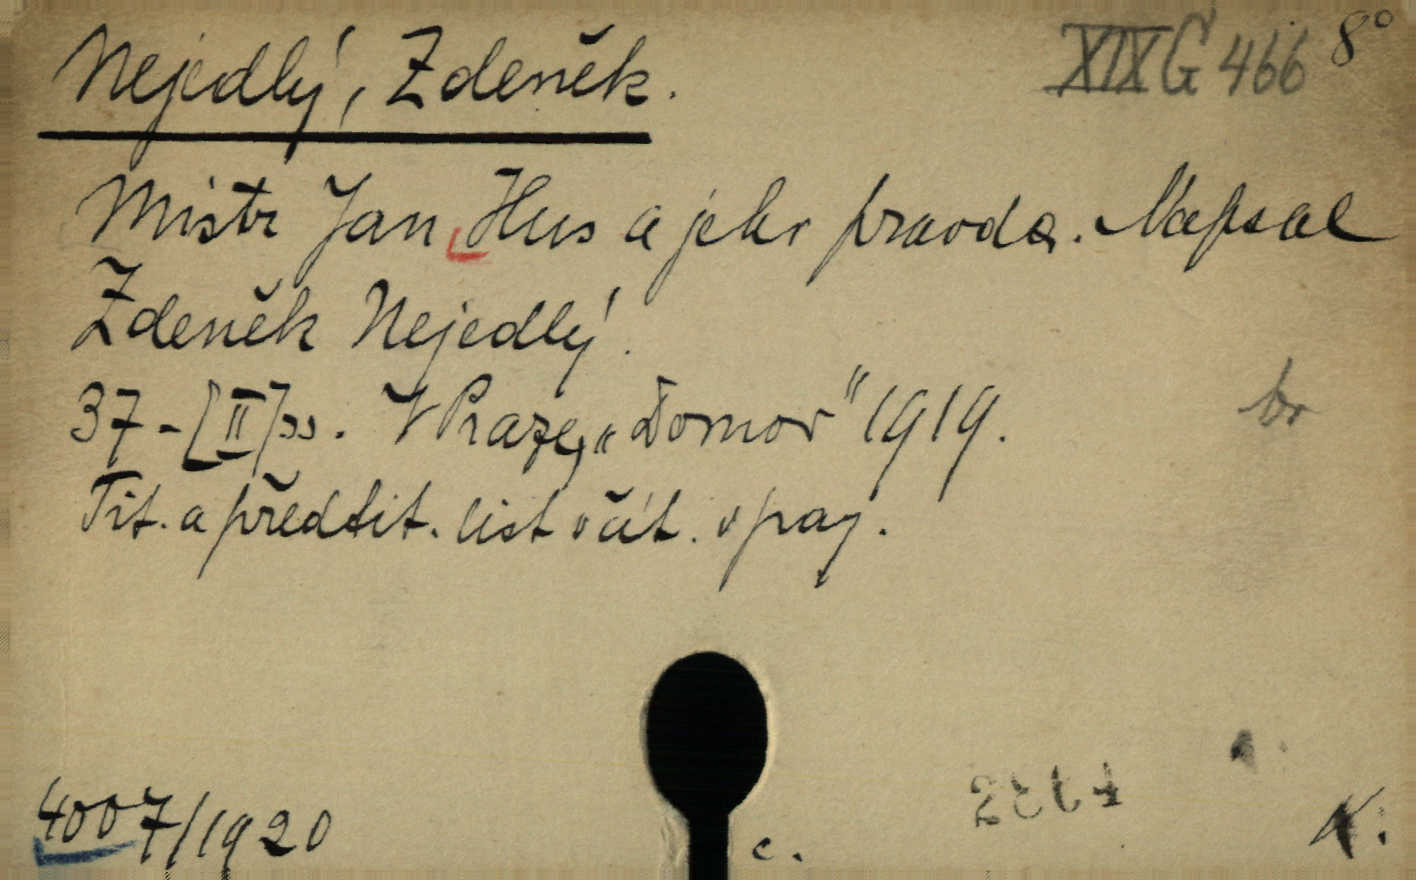 Nejedlý, Zdeněk. XIX G 466 8°
Mistr Jan Hus a jeho pravda. Napsal
Zdeněk Nejedlý.
37-[II] ss. V Praze, „Domov" 1919.
Tit. a předtit. list včít. v pag.
br
4007/1920
c.
K.